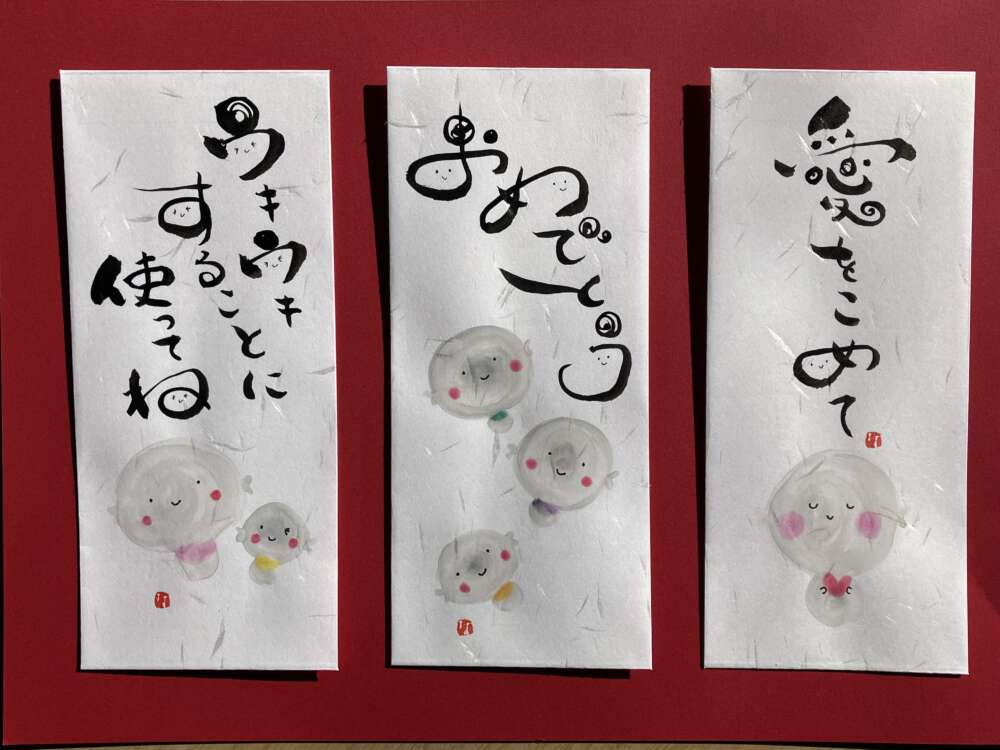 ウキウキ
することに
使ってね
おめでとう
愛をこめて